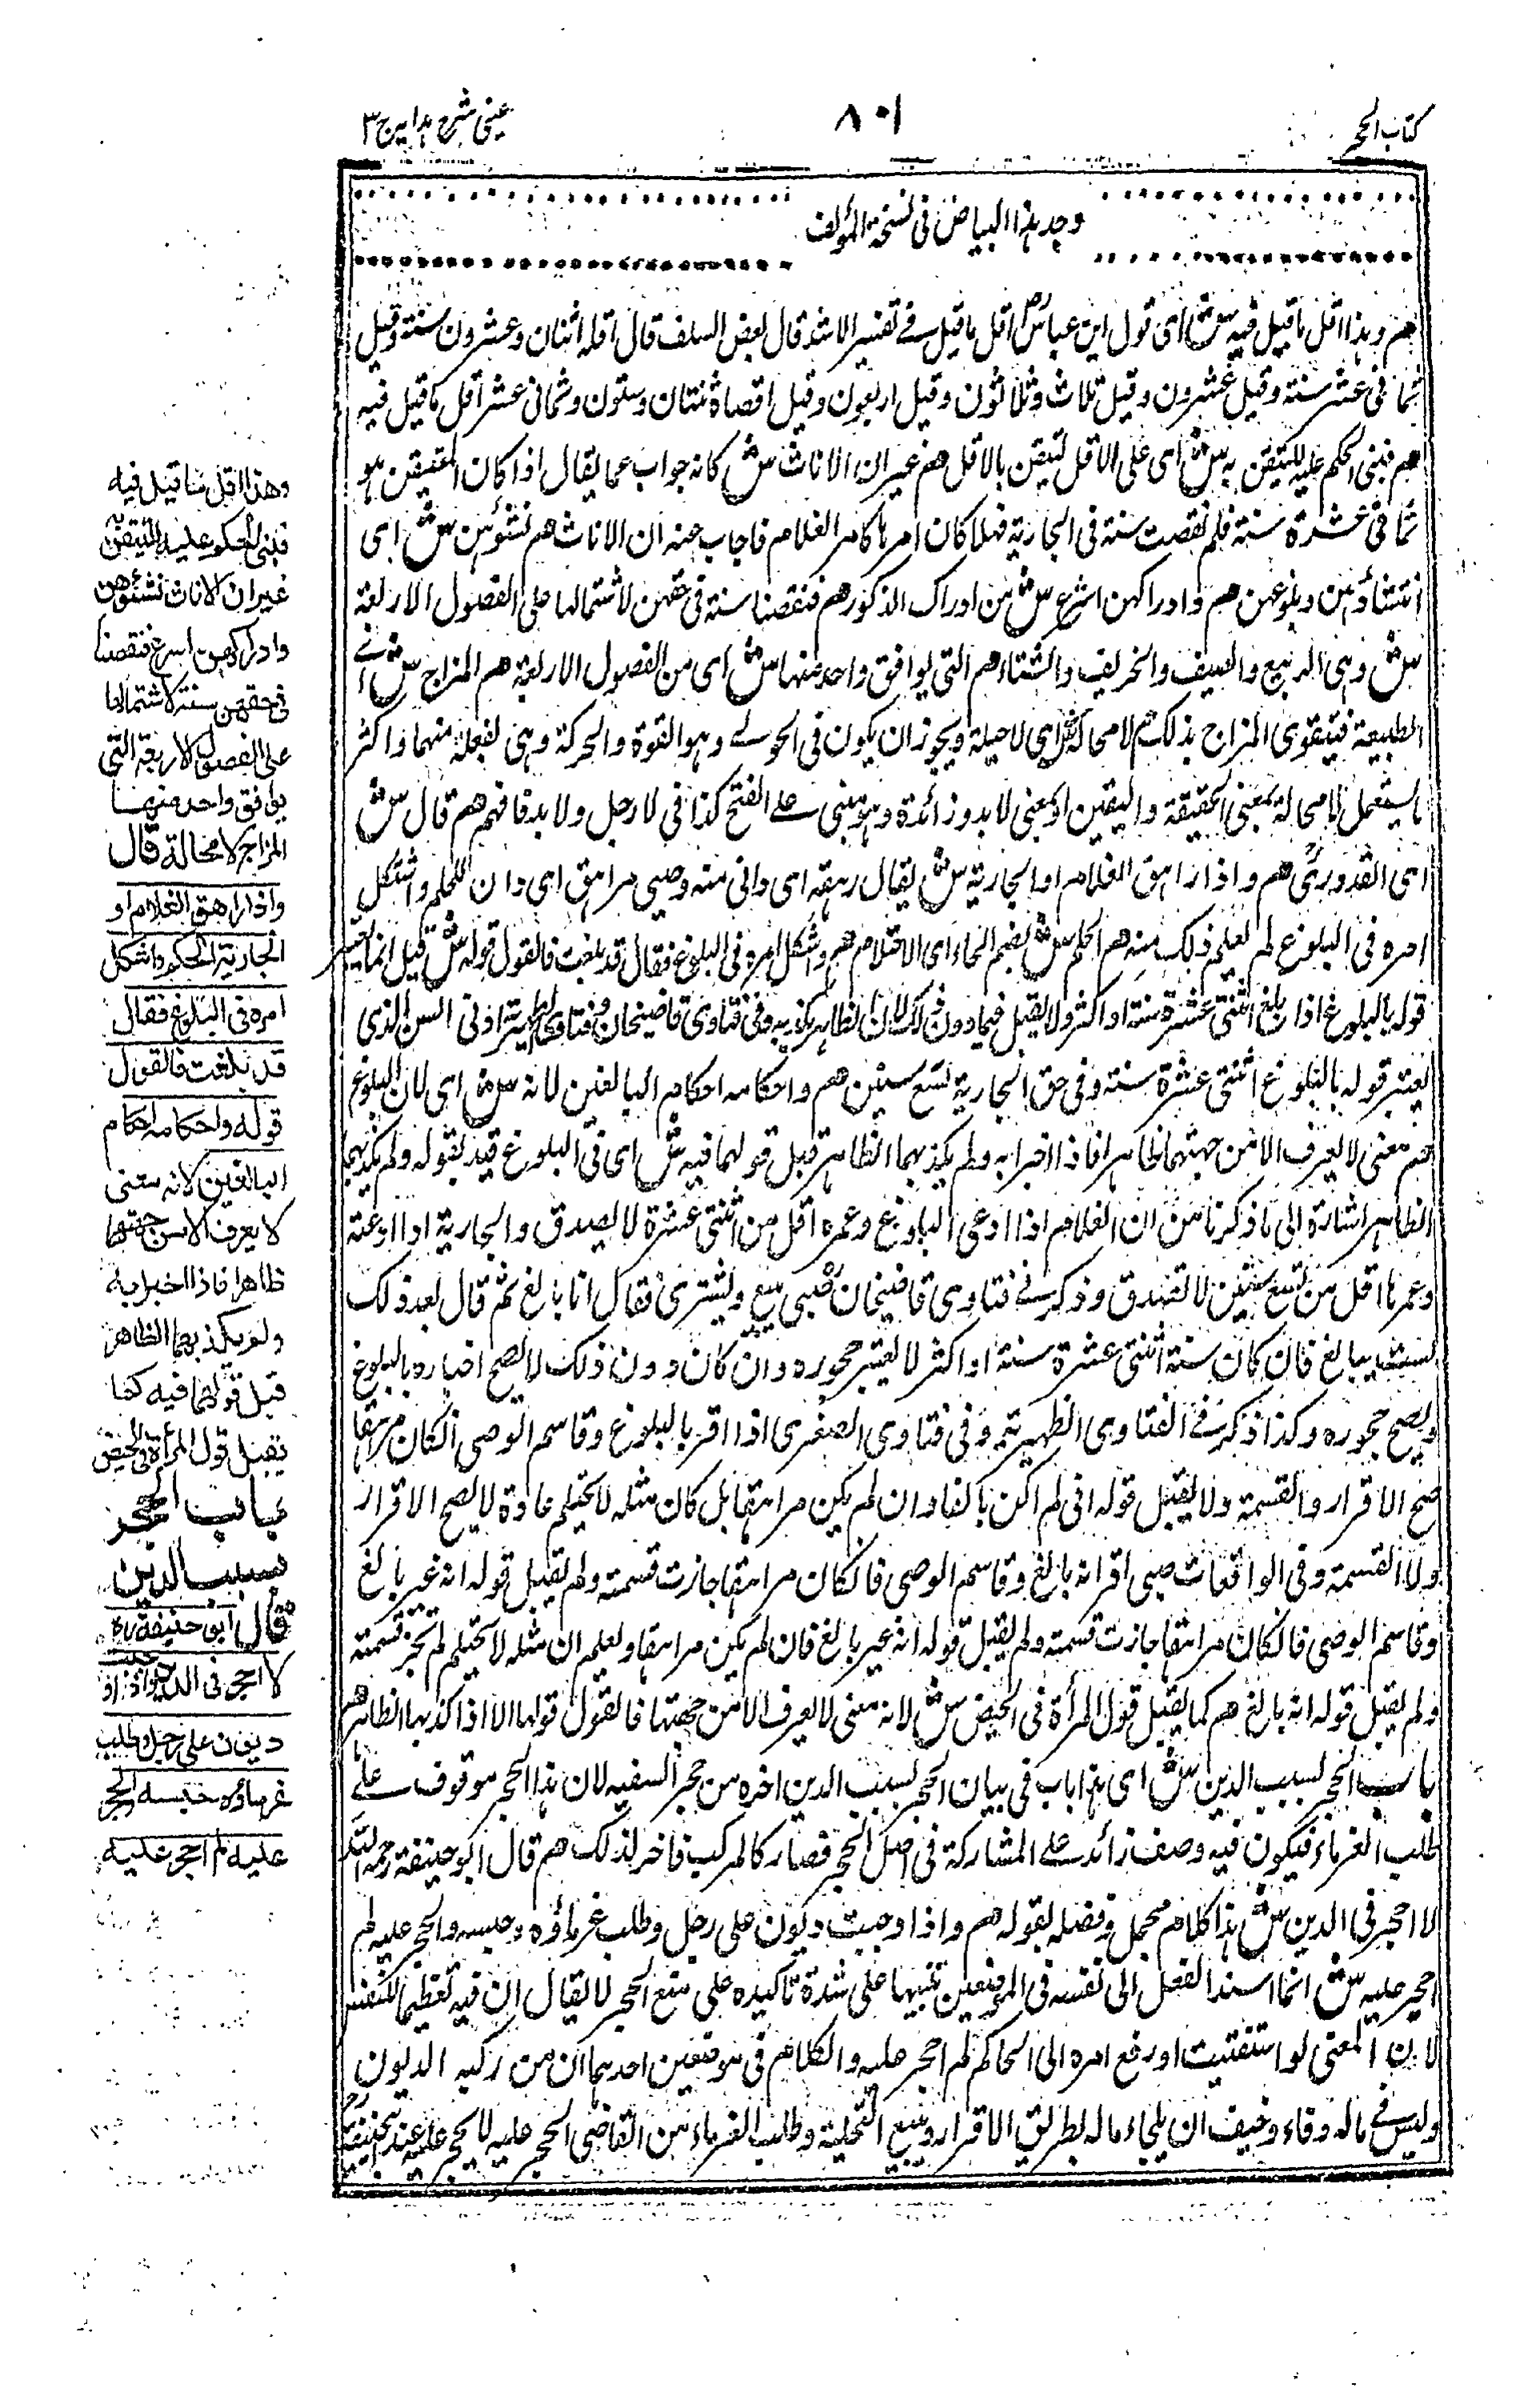 كتاب الحجر
٨٠١
عينى شرح هدايہ ج ٣
وجد هذا البياض فى نسخة المؤلف
هم وهذا اقل ما قيل فيه ش اى قول ابن عباس رض اقل ما قيل فے تفسير الاشد قال بعض السلف قال اقله اثنان وعشرون سنة وقيل
ثمانى عشر سنة وقيل عشرون وقيل ثلاث وثلاثون وقيل اربعون وقيل اقصاه ثنتان وستون وثمانى عشر اقل ما قيل فيه
هم فبنى الحكم عليه للتيقن به ش اى على الاقل لتيقن بالاقل هم غير ان الاناث ش كانه جواب عما يقال اذا كان المتيقن هو
ثمانى عشرة سنة فلم نقصت سنة فى الجارية فهلا كان امرها كامر الغلام فاجاب عنه ان الاناث هم نشوئهن ش اى
انتشاؤهن وبلوغهن هم وادراكهن اسرع ش من ادراك الذكور هم فنقصنا سنة فى حقهن لاشتمالها على الفصول الاربعة
ش وهى الربيع والصيف والخريف والشتاء هم التى يوافق واحد منها ش اى من الفصول الاربعة هم المزاج ش اے
الطبيعة فيتقوى المزاج بذلك هم لامحالة ش اى لاحيلة ويجوز ان يكون فى الحول وهو القوة والحركة وهى لفعلة منهما واكثر
ما يستعمل لامحالة بمعنى الحقيقة واليقين او بمعنى لابد وزائدة وهو مبنى علے الفتح كذا فى لا رجل ولابد فافهم هم قال ش
اى القدورى هم واذا راهق الغلام او الجارية ش يقال رهقه اى دانى منه وصبى مراهق اى دان للحلم واشكل
امره فى البلوغ لم يعلم ذلك منه هم الحلم ش بضم الحاء اى الاحتلام هم واشكل امره فى البلوغ فقال قد بلغت فالقول قوله ش قيل انما يعتبر
قوله بالبلوغ اذا بلغ اثنتى عشرة سنة او اكثر ولا يقبل فيما دون ذلك لان الظاهر يكذبه وفى فتاوى قاضيخان وفتاوى الظهيرية ادنى السن الذى
يعتبر قوله بالبلوغ اثنتى عشرة سنة وفى حق الجارية تسع سنين هم واحكامه احكام البالغين لانه ش اى لان البلوغ
هم معنى لا يعرف الا من جهتهما ظاهرا فاذا اخبرا به ولم يكذبهما الظاهر قبل قولهما فيه ش اى فى البلوغ قيد بقوله ولم يكذبهما
الظاهر اشارة الى ما ذكرنا من ان الغلام اذا ادعى البلوغ وعمره اقل من اثنتى عشرة لا يصدق والجارية اذا ادعته
وعمرها اقل من تسع سنين لا تصدق وذكر فے فتاوى قاضيخان صبى يبيع ويشترى فقال انا بالغ ثم قال بعد ذلك
لست ببالغ فان كان سنه اثنتى عشرة سنة او اكثر لا يعتبر جحوده وان كان دون ذلك لا يصح اخباره بالبلوغ
ويصح جحوده وكذا ذكر فے الفتاوى الظهيرية وفى فتاوى الصغرى اذا اقر بالبلوغ وقاسم الوصى ان كان مراهقا
صح الاقرار والقسمة ولا يقبل قوله انى لم اكن بالغا وان لم يكن مراهقا بل كان مثله لا يحتلم عادة لا يصح الاقرار
ولا القسمة وفى الواقعات صبى اقر انه بالغ وقاسم الوصى فان كان مراهقا جازت قسمته ولم يقبل قوله انه غير بالغ
وقاسم الوصى فان كان مراهقا جازت قسمته ولم يقبل قوله انه غير بالغ فان لم يكن مراهقا ويعلم ان مثله لا يحتلم لم تجز قسمته
ولم يقبل قوله انه بالغ هم كما يقبل قول المرأة فى الحيض ش لانه معنى لا يعرف الا من جهتها فالقول قولها الا اذا كذبها الظاهر هم
باب الحجر بسبب الدين ش اى هذا باب فى بيان الحجر بسبب الدين اخره من حجر السفيه لان هذا الحجر موقوف علے
طلب الغرماء فيكون فيه وصف زائد علے المشاركة فى اصل الحجر فصار كالمركب فاخر لذلك هم قال ابو حنيفة رحمه الله
لا احجر فى الدين ش هذا كلام مجمل وفصله بقوله هم واذا وجبت ديون على رجل وطلب غرماؤه حبسه والحجر عليه لم
احجر عليه ش انما اسند الفعل الى نفسه فى الموضعين تنبيها على شدة تاكيده على منع الحجر لا يقال ان فيه تعظيما للنفس
لان المعنى لو استفتيت او رفع امره الى الحاكم لم احجر عليه والكلام فى موضعين احدهما ان من ركبه الديون
وليس فے ماله وفاء وخيف ان يلجاء ماله بطريق الاقرار وبيع التلجئة وطلب الغرماء من القاضى الحجر عليه لا يحجر عليه عند ابى حنيفة رح
وهذا اقل ما قيل فيه
فبنى الحكم عليه للتيقن به
غير ان الاناث نشئؤهن
وادراكهن اسرع فنقصنا
فى حقهن سنة لاشتمالها
على الفصول الاربعة التى
يوافق واحد منها
المزاج لامحالة قال
واذا راهق الغلام او
الجارية الحلم واشكل
امره فى البلوغ فقال
قد بلغت فالقول
قوله واحكامه احكام
البالغين لانه معنى
لا يعرف الا من جهتهما
ظاهرا فاذا اخبرا به
ولم يكذبهما الظاهر
قبل قولهما فيه كما
يقبل قول المرأة فى الحيض
باب الحجر
بسبب الدين
قال ابو حنيفة رح
لا احجر فى الدين واذا وجبت
ديون على رجل وطلب
غرماؤه حبسه والحجر
عليه لم احجر عليه